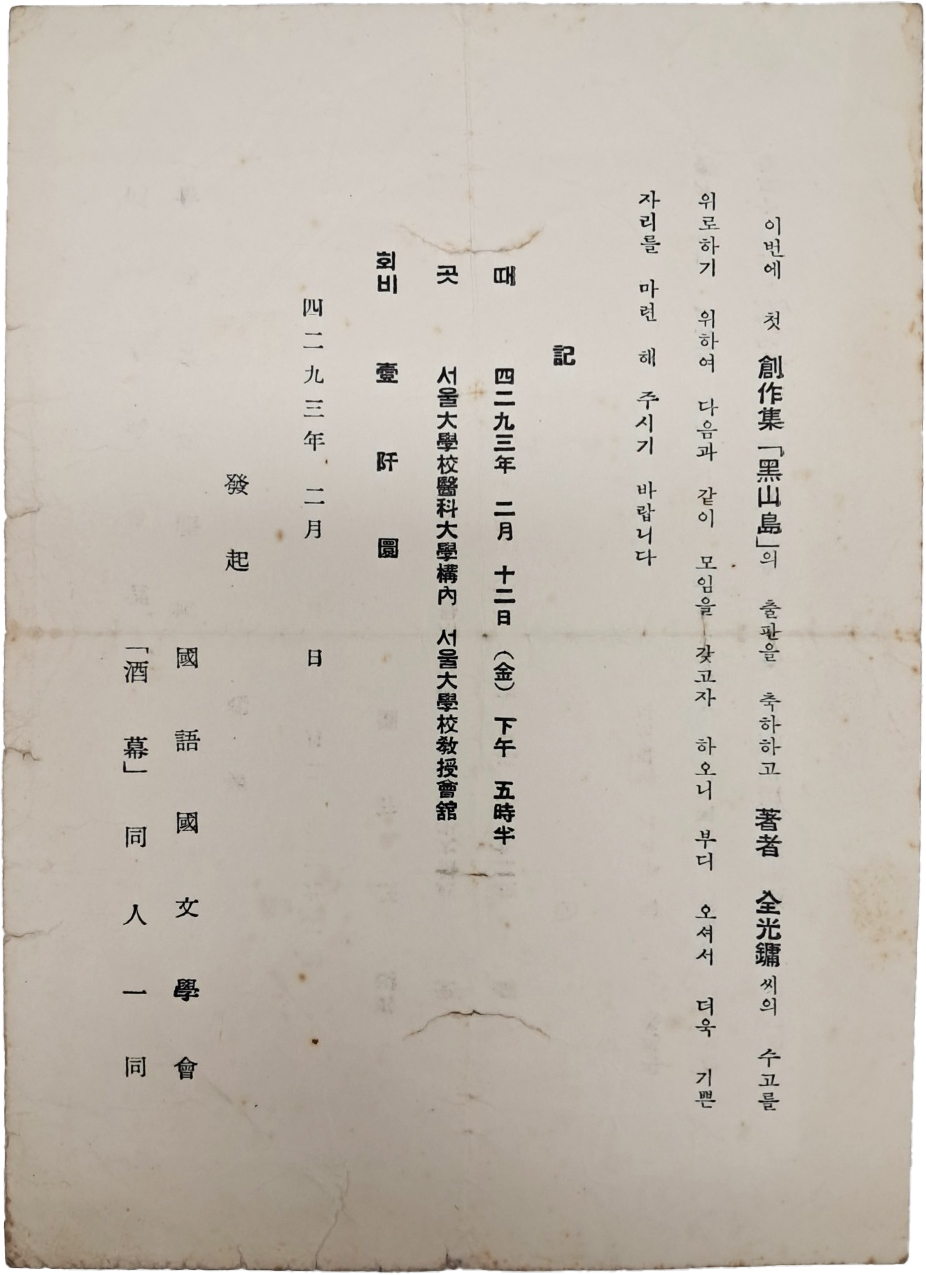 이번에 첫 創作集「黑山島」의 출판을 축하하고 著者 全光鏞 씨의 수고를
위로하기 위하여 다음과 같이 모임을 갖고자 하오니 부디 오셔서 더욱 기쁜
자리를 마련 해 주시기 바랍니다
記
때 四二九三年 二月 十二日 (金) 下午 五時半
곳 서울大學校醫科大學構內 서울大學校敎授會舘
회비 壹阡圜
四二九三年 二月 日
發起
國語國文學會
「酒幕」同人一同